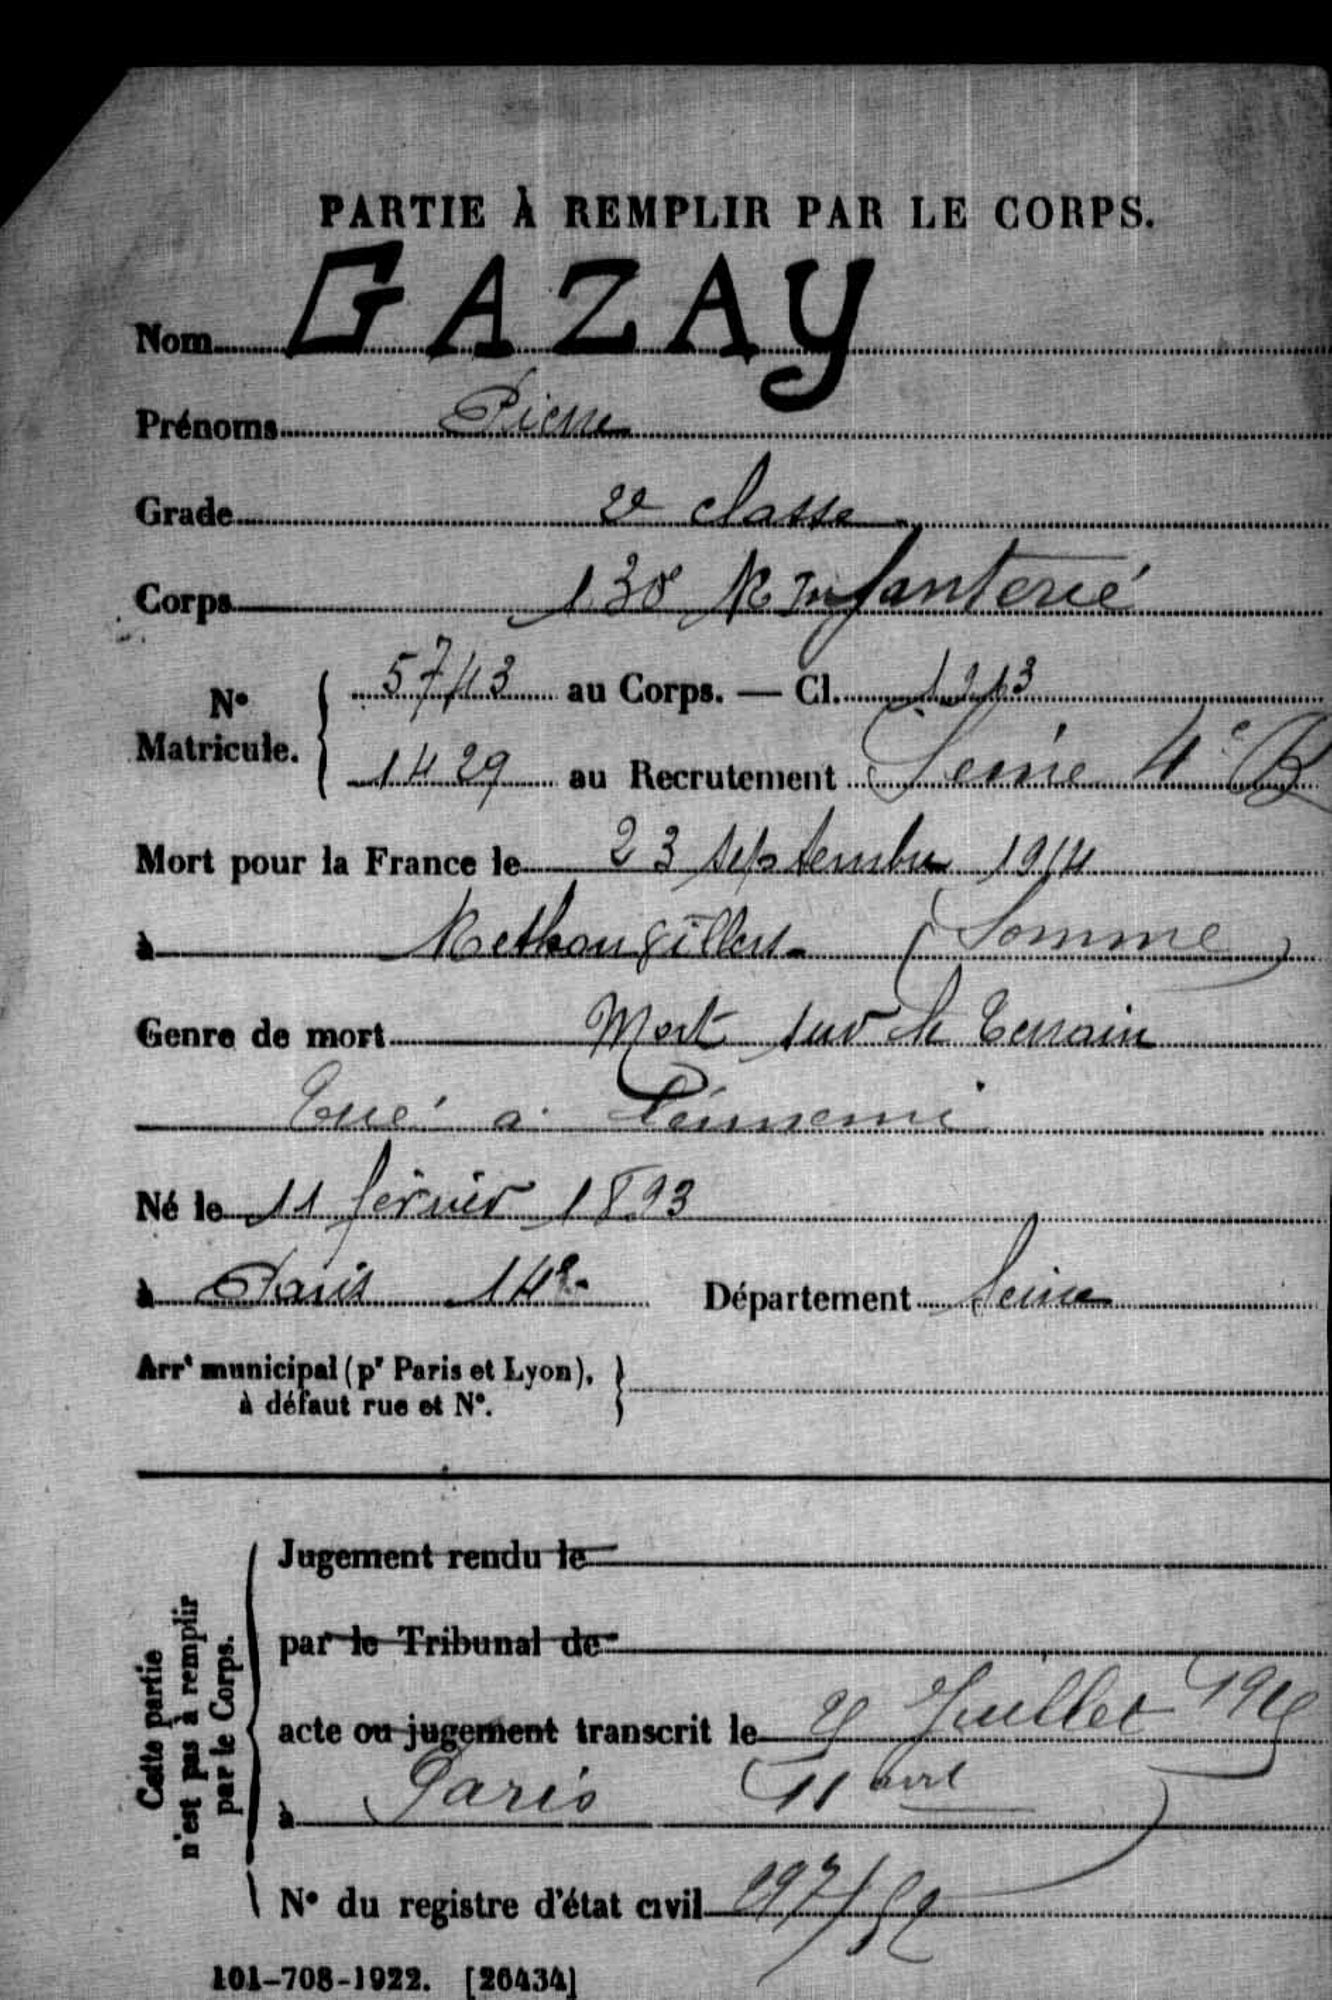 PARTIE À REMPLIR PAR LE CORPS.
Nom GAZAY
Prénoms Pierre
Grade 2e classe
Corps 130e R Infanterie
N° Matricule. { 5743 au Corps. — Cl. 1913
1429 au Recrutement Seine 4e B
Mort pour la France le 23 septembre 1914
à Rethonvillers (Somme)
Genre de mort Mort sur le terrain
Tué à l'ennemi
Né le 11 février 1893
à Paris 14e Département Seine
Arrt municipal (pr Paris et Lyon), à défaut rue et N°. }
Cette partie n'est pas à remplir par le Corps.
Jugement rendu le
par le Tribunal de
acte ou jugement transcrit le Juillet
à Paris 11 arrt
N° du registre d'état civil
101-708-1922. [26434]